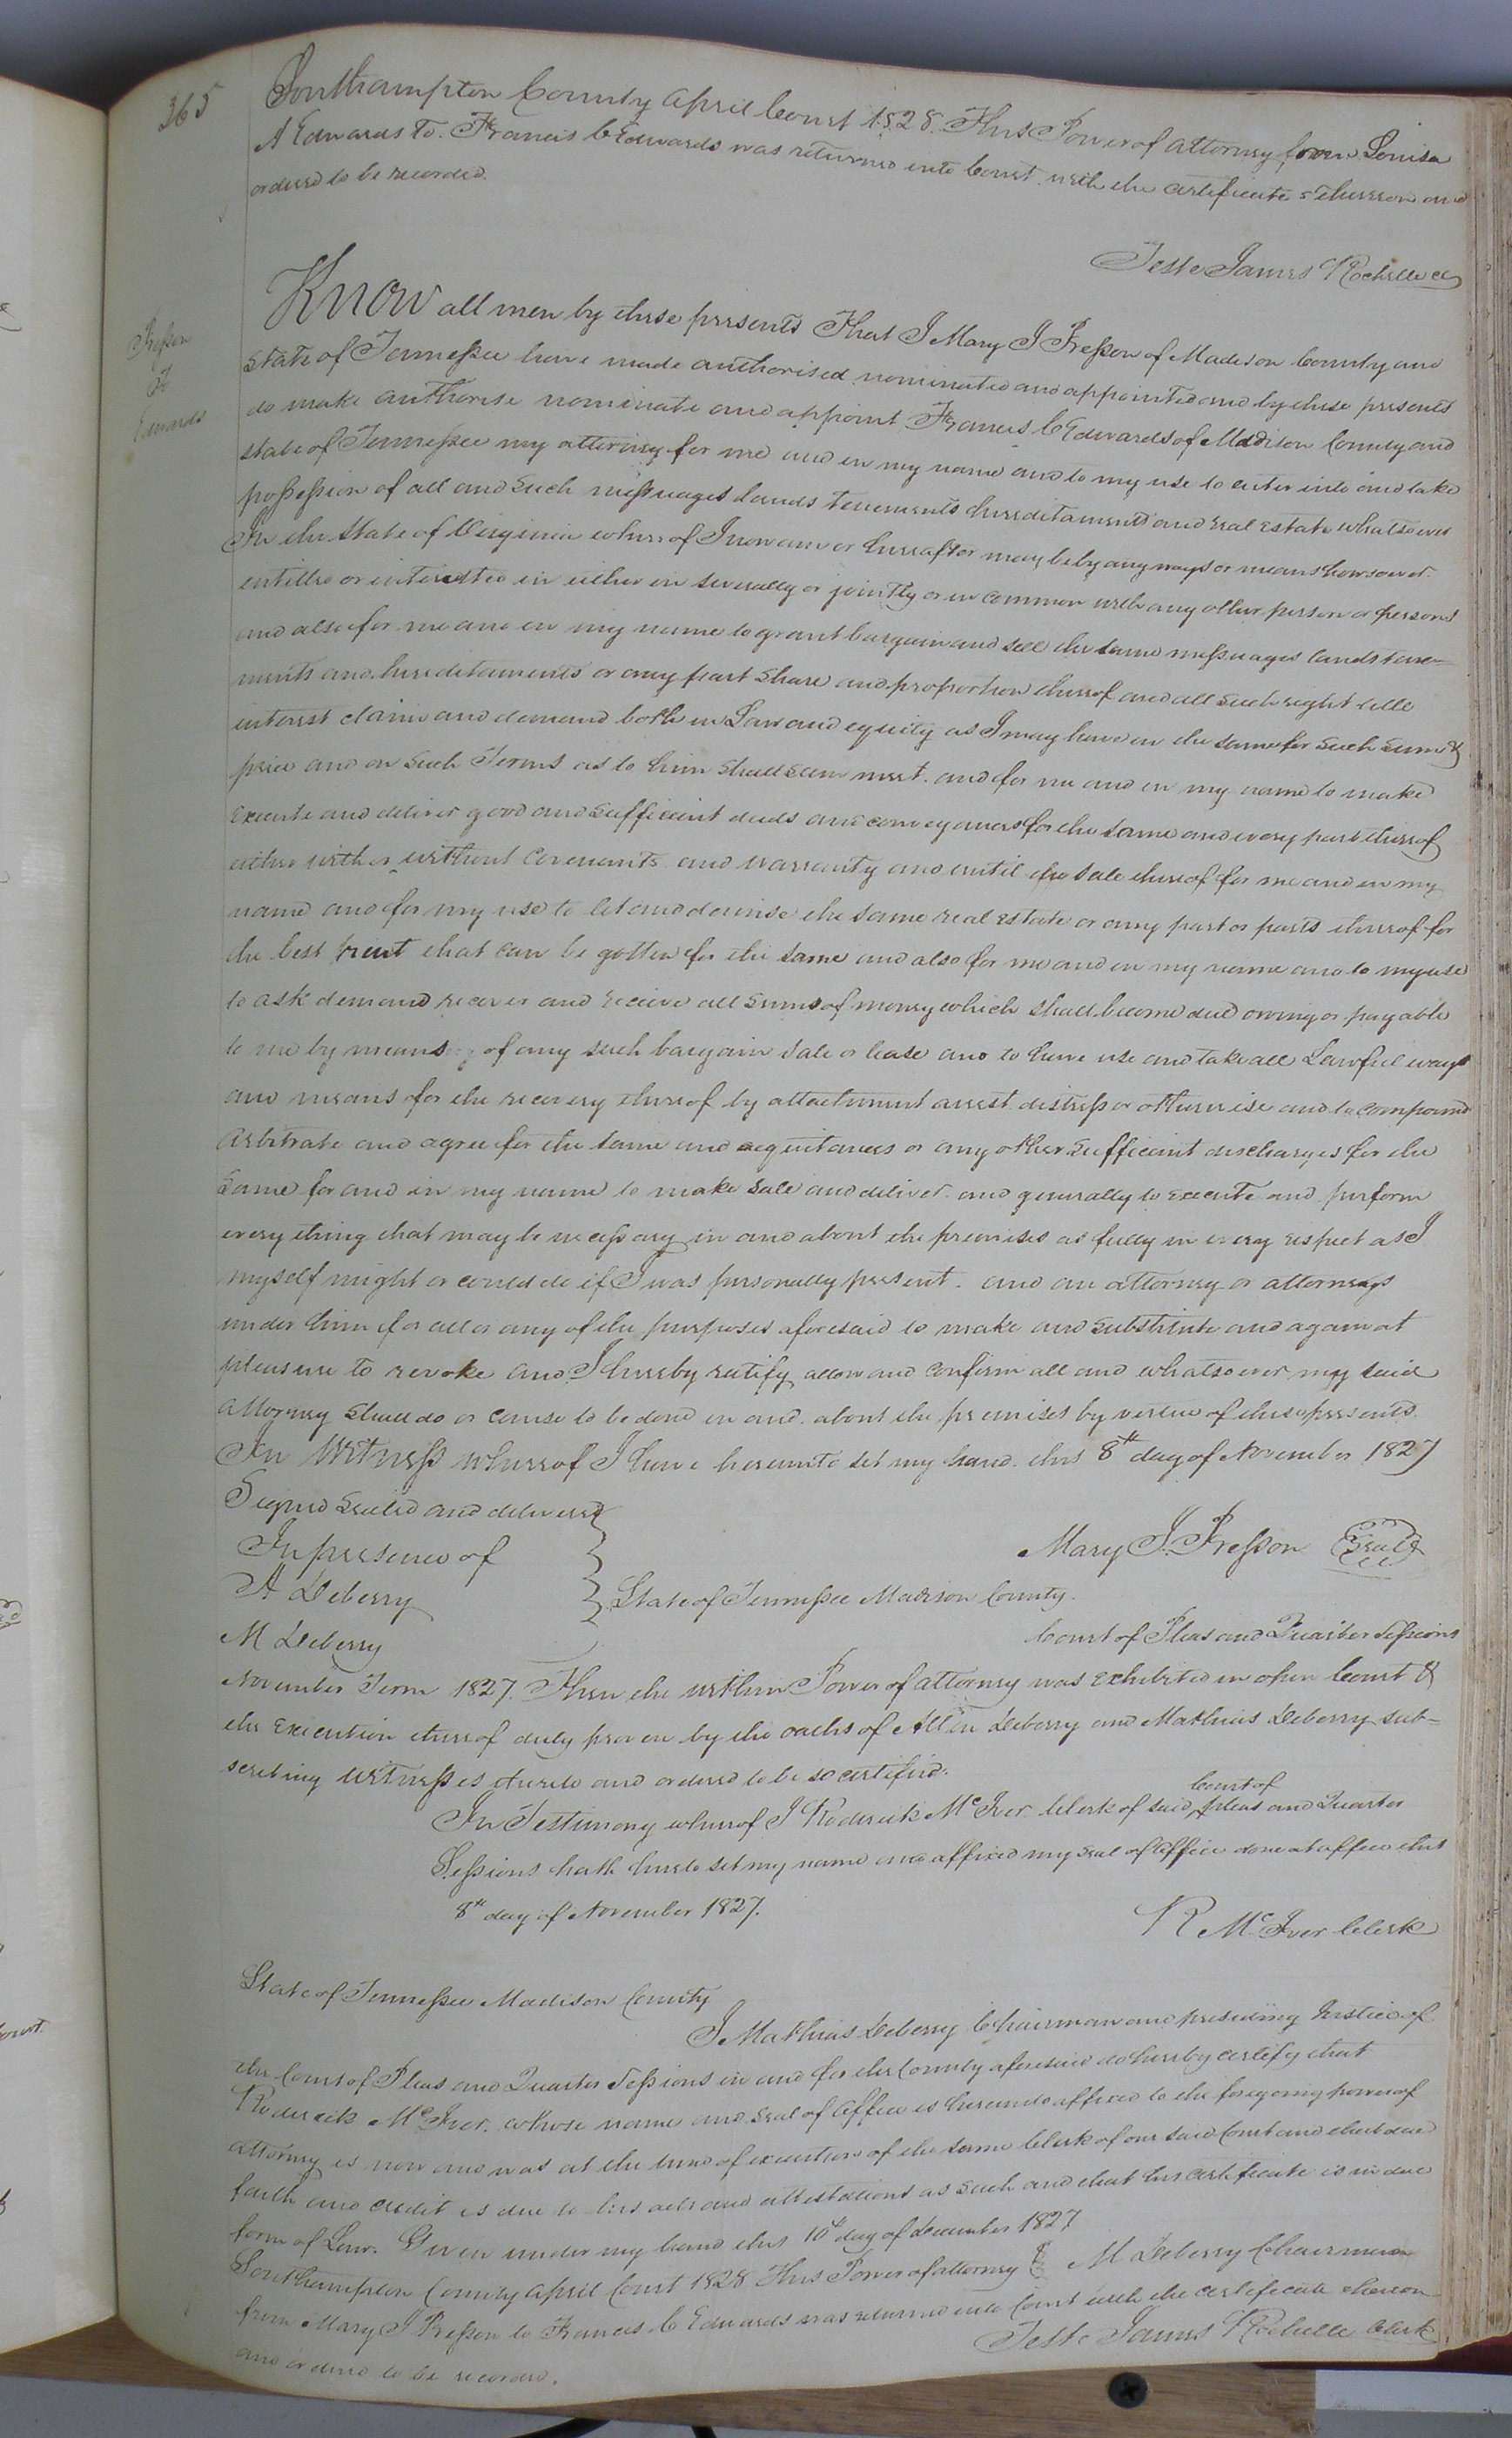 365
Southampton County April Court 1828. This Power of attorney from Louisa
A Edwards to Francis C Edwards was returned into Court with the certificates thereon and
ordered to be recorded.
Teste James Rochelle CC
Presson
To
Edwards
Know all men by these presents That I Mary J Presson of Madison County and
State of Tennessee have made authorised nominated and appointed and by these presents
do make authorise nominate and appoint Francis C Edwards of Madison County and
state of Tennessee my attorney for me and in my name and to my use to enter into and take
possession of all and such messuages lands tenements hereditaments and real estate whatsoever
In the State of Virginia whereof I now am or hereafter may be by any ways or means howsoever
entitled or interested in either in severally or jointly or in common with any other person or persons
and also for me and in my name to grant bargain and sell the same messuages lands tene-
ments and hereditaments or any part Share and proportion thereof and all such right title
interest claim and demand both in Law and equity as I may have in the same for such sum &
price and on such Terms as to him shall seem meet. and for me and in my name to make
execute and deliver good and sufficient deeds and conveyances for the same and every part thereof
either with or without Covenants and warranty and until the sale thereof for me and in my
name and for my use to let and demise the same real estate or any part or parts thereof for
the best rent that can be gotten for the same and also for me and in my name and to my use
to ask demand recover and receive all sums of money which shall become due owing or payable
to me by means of any such bargain sale or lease and to have use and take all Lawful ways
and means for the recovery thereof by attachment arrest distress or otherwise and to compound
Arbitrate and agree for the same and acquitances or any other sufficient discharges for the
Same for and in my name to make sale and deliver and generally to execute and perform
every thing that may be necessary in and about the premises as fully in every respect as I
myself might or could do if I was personally present. and an attorney or attorneys
under him for all or any of the purposes aforesaid to make and substitute and again at
pleasure to revoke and I hereby ratify allow and confirm all and whatsoever my said
Attorney shall do or cause to be done in and about the premises by virtue of these presents
In Witness whereof I have hereunto set my hand this 8th day of November 1827
Signed Sealed and delivered
In presence of
Mary J. Presson Seal
A Deberry
State of Tennessee Madison County.
M Deberry
Court of Pleas and Quarter Sessions
November Term 1827. Then the within Power of attorney was exhibited in open Court &
the Execution thereof duly proven by the oaths of Allin Deberry and Mathias Deberry sub-
scribing Witnesses thereto and ordered to be so certified.
In Testimony whereof I Roderick McIver Clerk of said Court of pleas and Quarter
Sessions hath hereto set my name and affixed my seal of office done at office this
8th day of November 1827.
R McIver Clerk
State of Tennessee Madison County
I Mathias Deberry Chairman and presiding Justice of
the Court of Pleas and Quarter Sessions in and for the County aforesaid do hereby certify that
Roderick McIver. whose name and seal of office is hereunto affixed to the foregoing power of
attorney is now and was at the time of execution of the same Clerk of our said Court and that due
faith and credit is due to his acts and attestations as such and that his certificate is in due
form of Law. Given under my hand this 10th day of December 1827
M Deberry Chairman
Southampton County April Court 1828 This Power of attorney
from Mary J Presson to Francis C Edwards was returned into Court with the certificate thereon
and ordered to be recorded.
Teste James Rochelle Clerk